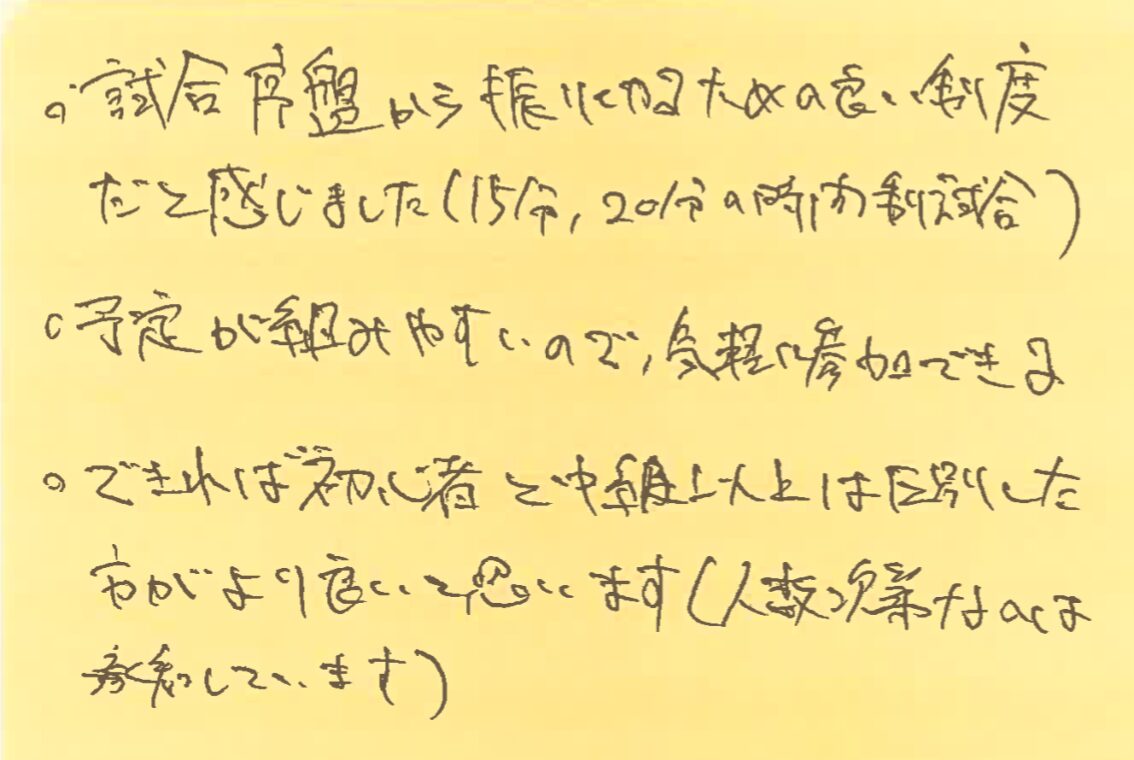 ○試合序盤から振りに切るための良い制度
だと感じました(15分,20分の時間制試合)
○予定が組みやすいので,気軽に参加できる
○できれば初心者と中級以上は区別した
方がより良いと思います(人数次第なのは
承知しています)